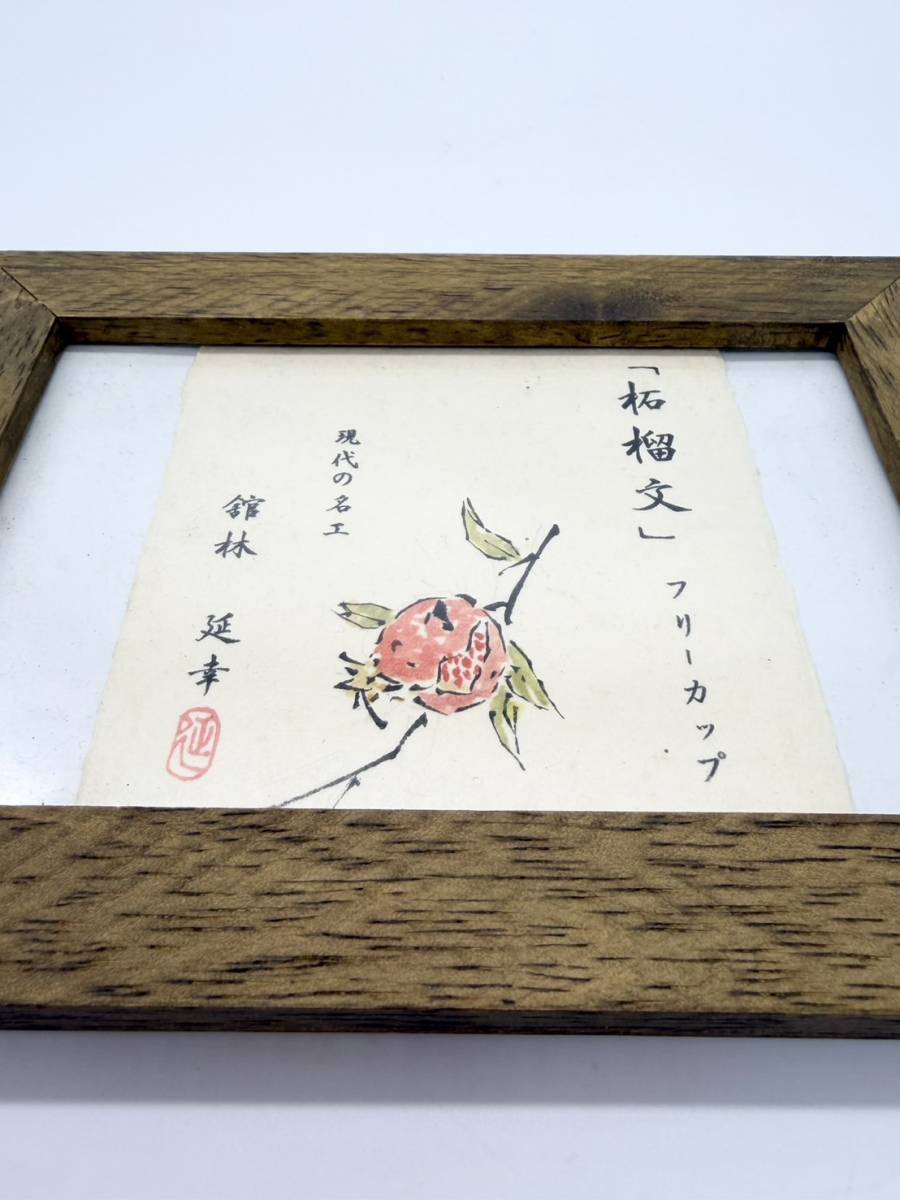 「柘榴文」 フリーカップ
現代の名工
舘林 延幸
延